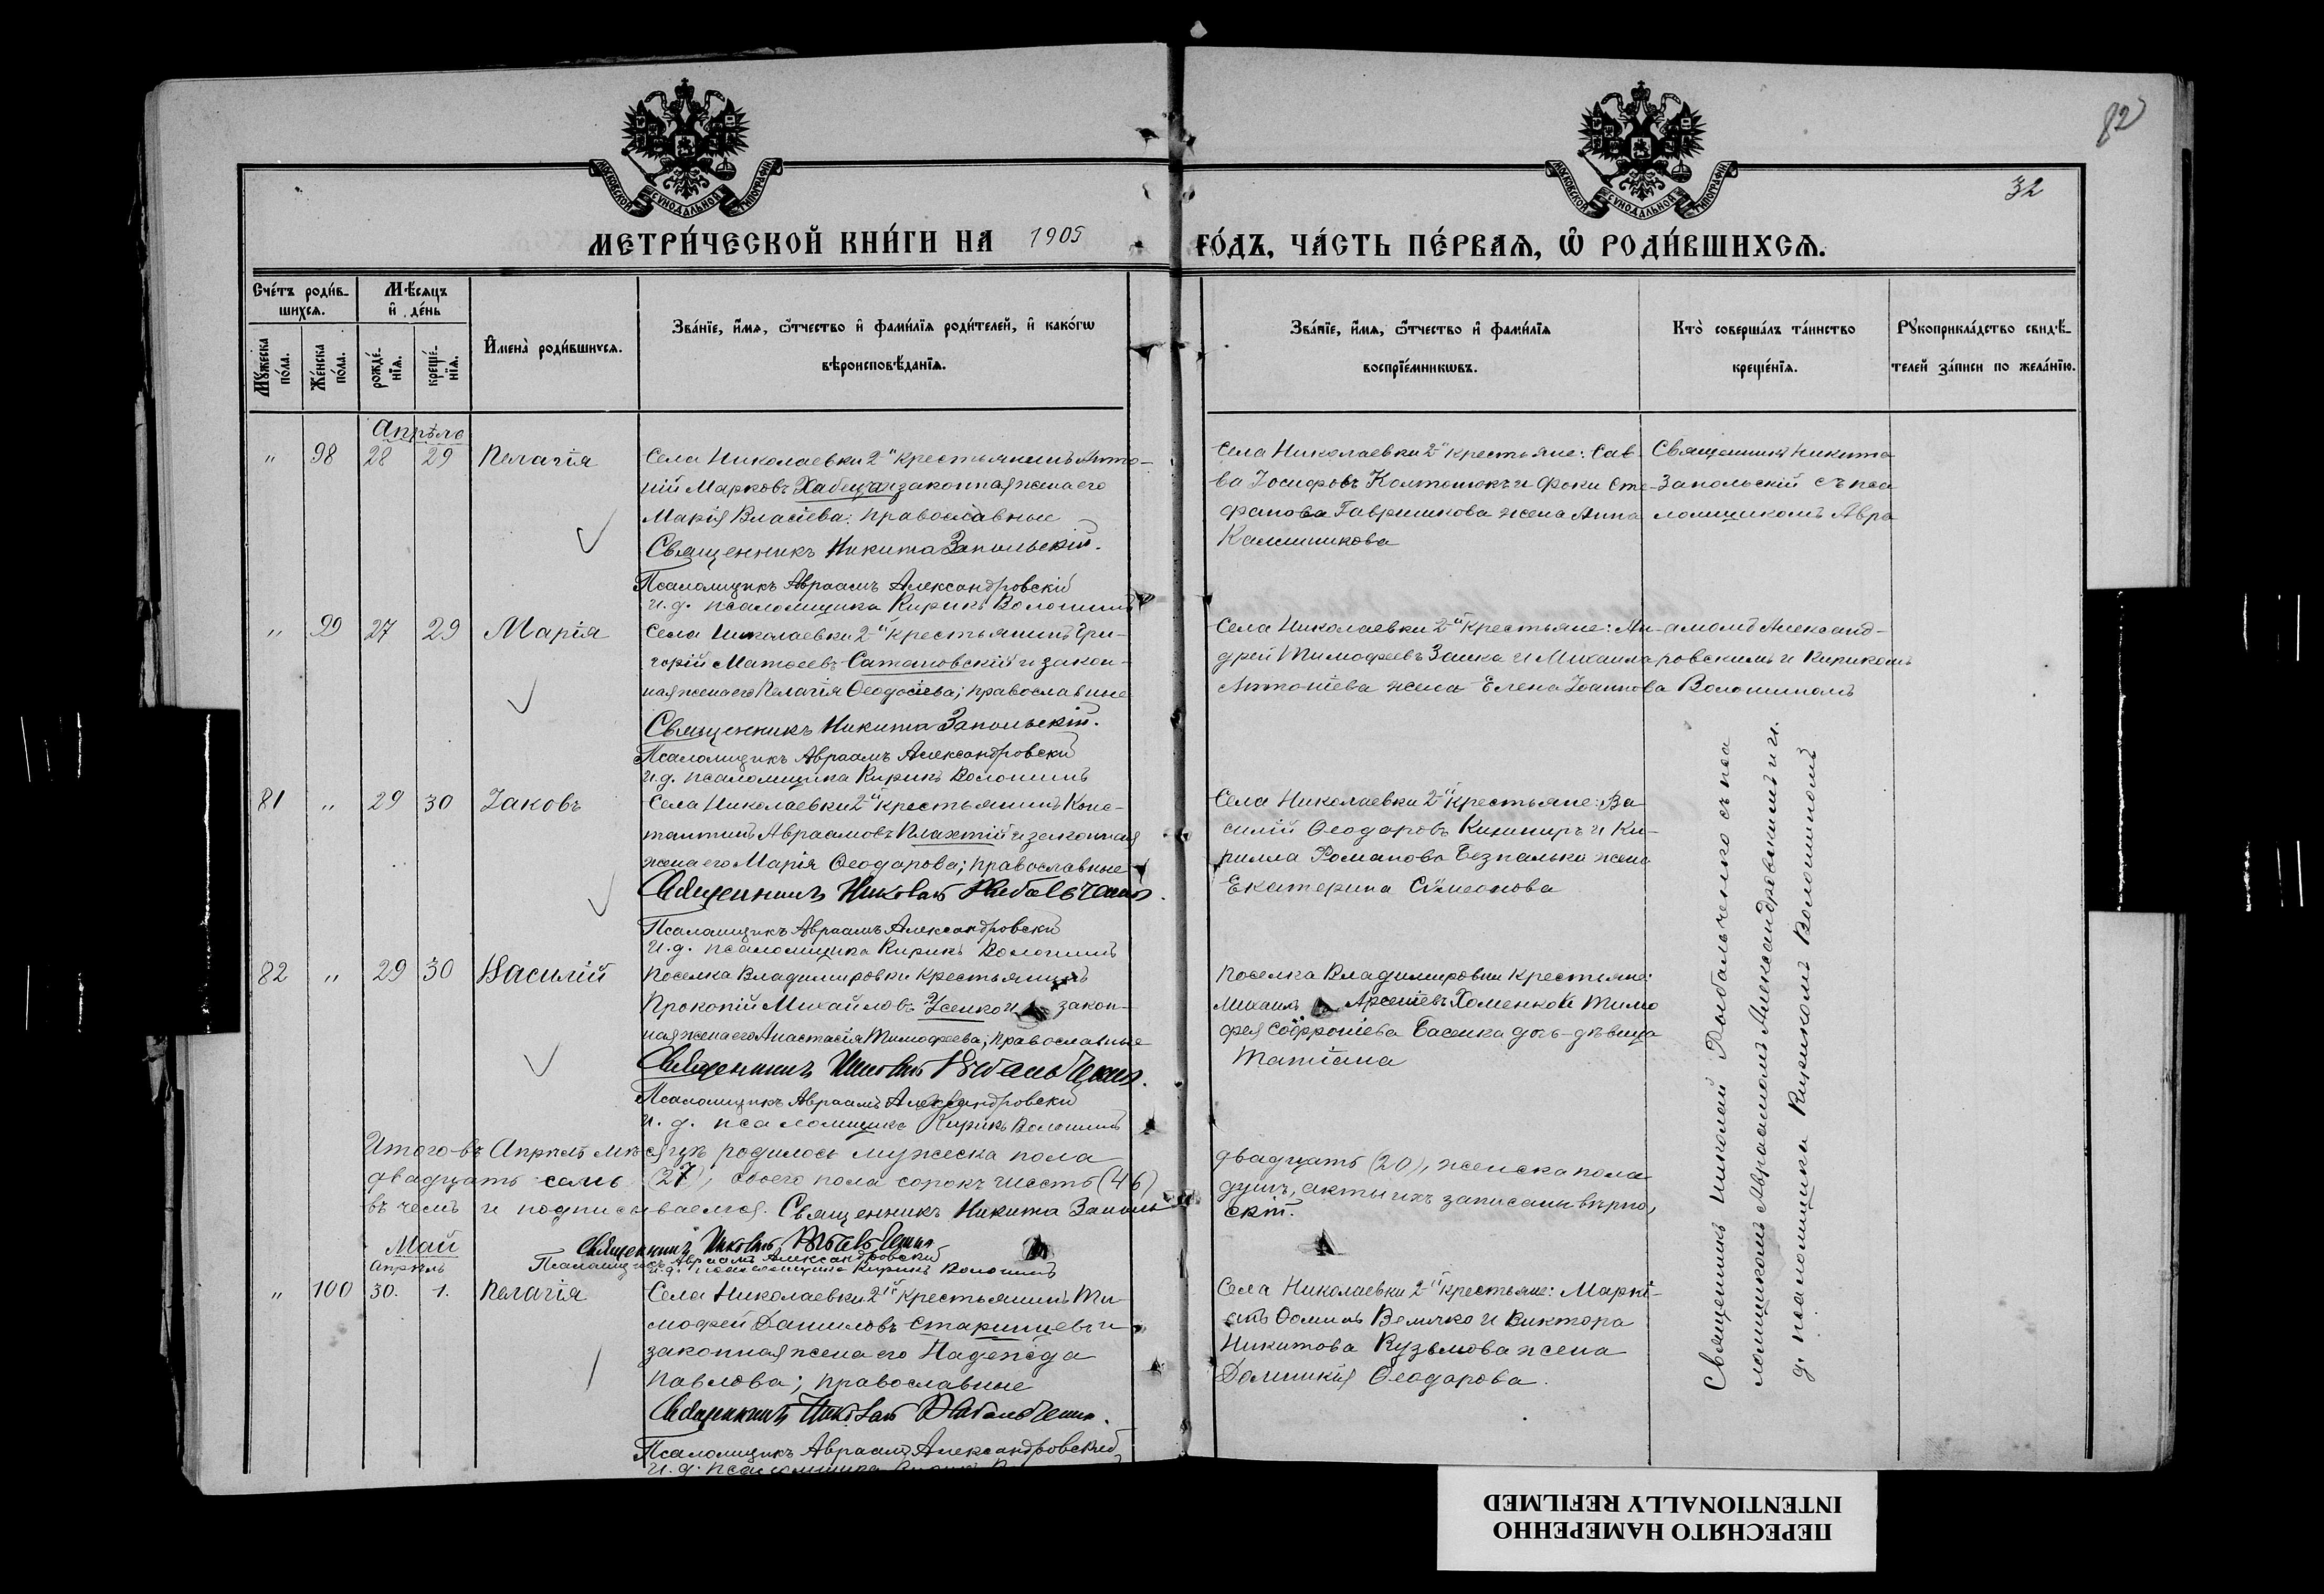 82
32
МОСКОВСКОЙ СѴНОДАЛЬНОЙ ТИПОГРАФІИ
МОСКОВСКОЙ СѴНОДАЛЬНОЙ ТИПОГРАФІИ
МЕТРИ́ЧЕСКОЙ КНИ́ГИ НА 1905 ГО́ДЪ, ЧА́СТЬ ПЕ́РВАЯ, Ѽ РОДИ́ВШИХСЯ.
Сче́тъ роди́в-
шихся.
Мѣ́сяцъ
и҆ де́нь
Му́жеска по́ла.
Же́нска по́ла.
рожде́-нїя.
креще́-нїя.
И҆мена̀ роди́вшихся.
Зва́нїе, и҆́мя, ѻ҆́тчество и҆ фами́лїя роди́телей, и҆ како́гѡ
вѣроисповѣ́данїя.
Зва́нїе, и҆́мя, ѻ҆́тчество и҆ фами́лїя
воспрїе́мникѡвъ.
Кто̀ соверша́лъ та́инство
креще́нїя.
Рꙋкоприкла́дство свидѣ́-
телей за́писи по жела́нїю.
Апрѣль
" 98 28 29 Пелагія
Села Николаевки 2й крестьянинъ Анто-
ній Марковъ Хабеца и законная жена его
Марія Власіева; православные
Священникъ Никита Запольскій.
Псаломщикъ Авраамъ Александровскій
и.д. псаломщика Кирикъ Волошинъ
Села Николаевки 2й крестьяне: Сав-
ва Іосифовъ Колтонюкъ и Фоки Сте-
фанова Гавришкова жена Анна
Калинникова
Священникъ Никита
Запольскій съ пса
ломщикомъ Авра
" 99 27 29 Марія
Села Николаевки 2й крестьянинъ Гри-
горій Матѳеевъ Сатановскій и закон-
ная жена его Пелагія Ѳеодосіева; православные
Священникъ Никита Запольскій.
Псаломщикъ Авраамъ Александровскій
и.д. псаломщика Кирикъ Волошинъ
Села Николаевки 2й крестьяне: Ан-
дрей Тимофеевъ Заика и Михаила
Антоніева жена Елена Іоаннова
амомъ Александ-
ровскимъ и Кирикомъ
Волошиномъ
81 " 29 30 Іаковъ
Села Николаевки 2й крестьянинъ Конс-
тантинъ Авраамовъ Плахтій и законная
жена его Марія Ѳеодорова; православные
Священникъ Николай Рыбальченко.
Псаломщикъ Авраамъ Александровскій
и.д. псаломщика Кирикъ Волошинъ
Села Николаевки 2й крестьяне: Ва-
силій Ѳеодоровъ Кушниръ и Ки-
рилла Романова Безпалька жена
Екатерина Сѵмеонова
82 " 29 30 Василій
поселка Владимировки крестьянинъ
Прокопій Михайловъ Усенко и закон-
ная жена его Анастасія Тимофеева; православные
Священникъ Николай Рыбальченко.
Псаломщикъ Авраамъ Александровскій
и. д. псаломщика Кирикъ Волошинъ
поселка Владимировки крестьяне:
Михаилъ Арсеніевъ Хоменко и Тимо
фея Софроніева Басенка дочь-дѣвица
Татіана
Итого въ Апрѣлѣ мѣсяцѣ родилось мужеска пола двадцать (20), женска пола
двадцать семь (27), обоего пола сорокъ шесть (46) душъ, акты ихъ записаны вѣрно,
въ чемъ и подписываемся. Священникъ Никита Запольскій.
Священникъ Николай Рыбальченко
Псаломщикъ Авраамъ Александровскій
и.д. псаломщика Кирикъ Волошинъ
Май
Апрѣль
" 100 30. 1. Пелагія
Села Николаевки 2й крестьянинъ Ти-
мофей Даниловъ Старинцевъ и
законная жена его Надежда
Павлова; православные
Священникъ Николай Рыбальченко.
Псаломщикъ Авраамъ Александровскій
и. д. псаломщика Кирикъ
Села Николаевки 2й крестьяне: Маркі-
анъ Ѳоминъ Величко и Виктора
Никитова Кузьмова жена
Домникія Ѳеодорова.
Священникъ Николай Рыбальченко съ пса
ломщикомъ Авраамомъ Александровскимъ и и.
д. псаломщика Кирикомъ Волошиномъ
ПЕРЕСНЯТО НАМЕРЕННО
INTENTIONALLY REFILMED